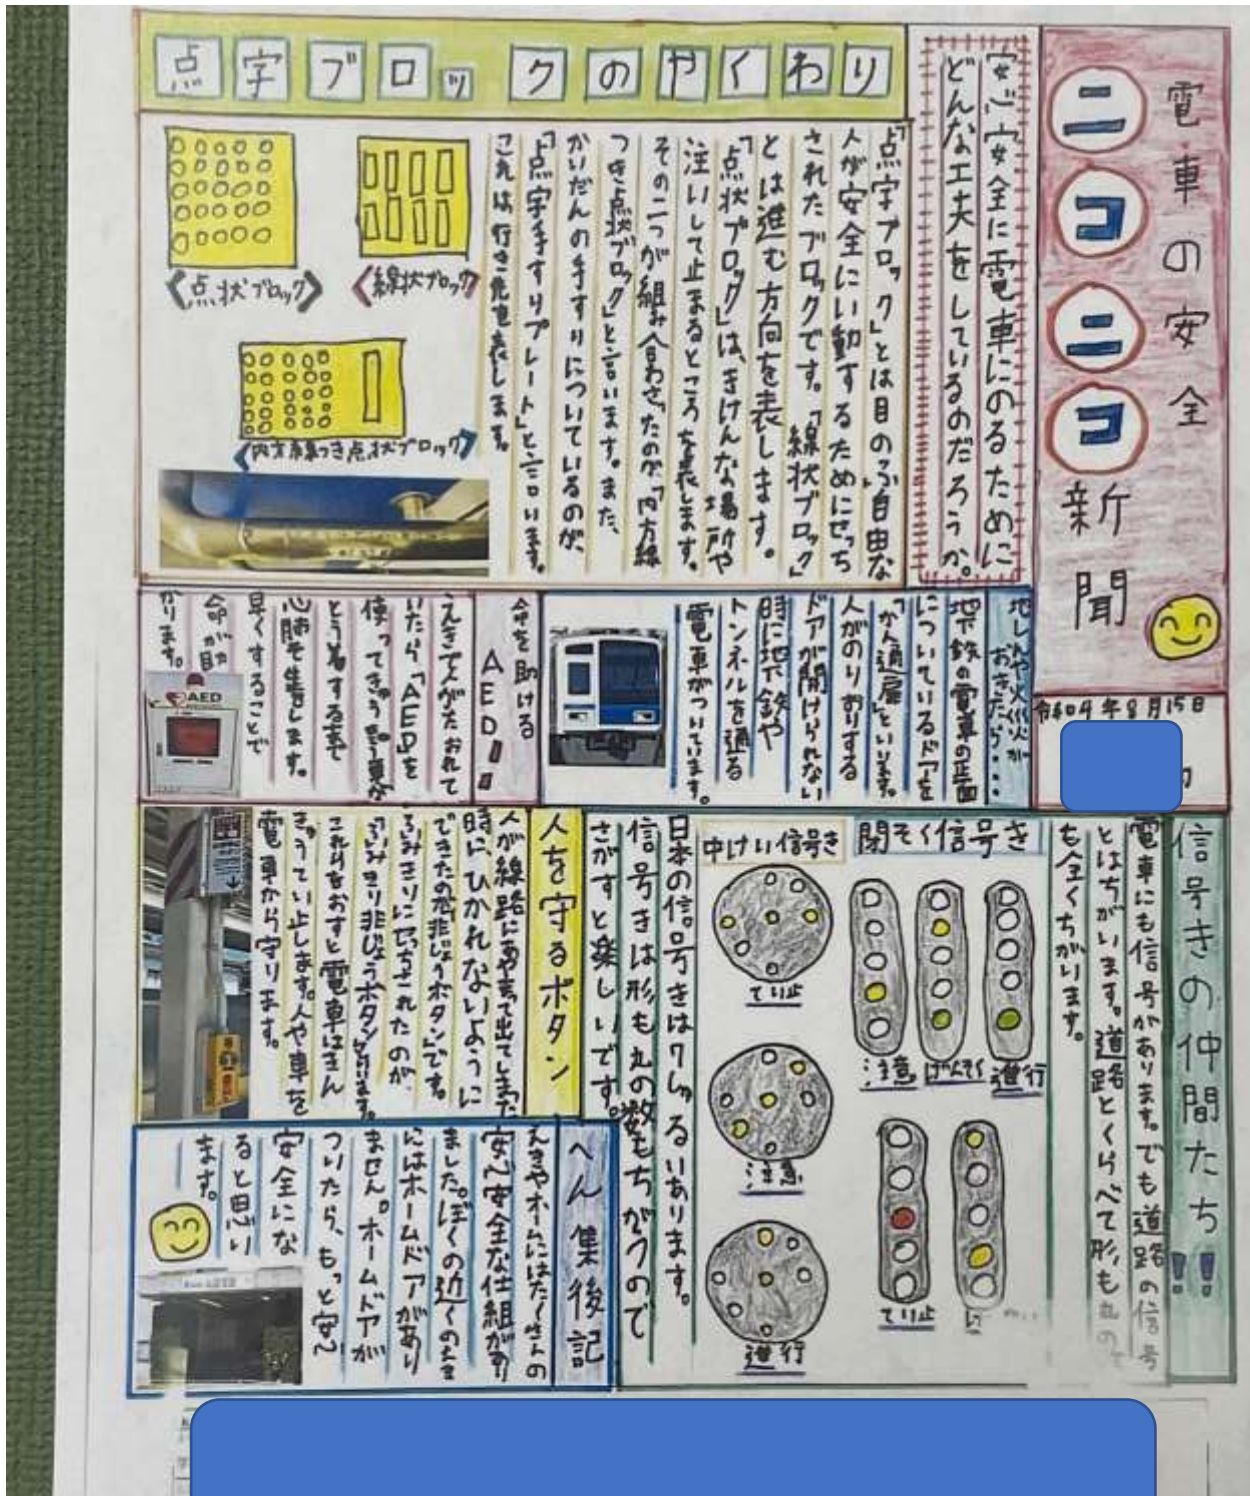 電車の安全
ニコニコ
新聞
令和4年8月15日
安心安全に電車にのるために
どんな工夫をしているのだろうか。
点字ブロックのやくわり
「点字ブロック」とは目のふ自由な
人が安全にい動するためにせっち
されたブロックです。「線状ブロック」
とは進む方向を表します。
「点状ブロック」は、きけんな場所や
注いして止まるところを表します。
その二つが組み合わさったのが「内方線
つき点状ブロック」と言います。また、
かいだんの手すりについているのが、
「点字手すりプレート」と言います。
これは行き先を表します。
線状ブロック
点状ブロック
内方線つき点状ブロック
地しんや火災が
おきたら・・・
地下鉄の電車の正面
についているドアを
「かん通扉」といいます。
人がのりおりする
ドアが開けられない
時に地下鉄や
トンネルを通る
電車がついています。
命を助ける
AED!!
えきで人がたおれて
いたら「AED」を
使ってきゅう急車が
とう着するまで
心肺そ生をします。
早くすることで
命が助
かります。
AED
信号きの仲間たち!!
電車にも信号があります。でも道路の信号
とはちがいます。道路とくらべて形も丸の
も全くちがいます。
閉そく信号き
進行
げんそく
注意
てい止
中けい信号き
てい止
注意
進行
日本の信号きは7しゅるいあります。
信号きは形も丸の数もちがうので
さがすと楽しいです。
人を守るボタン
人が線路にあやまって出てしまった
時に、ひかれないように
できたのが「非じょうボタン」です。
ふみきりにせっちされたのが、
「ふみきり非じょうボタン」と言います。
これらをおすと電車はきん
きゅうてい止します。人や車を
電車から守ります。
へん集後記
えきやホームにはたくさんの
安心安全な仕組があり
ました。ぼくの近くのえき
にはホームドアがあり
ません。ホームドアが
ついたら、もっと安心
安全にな
ると思い
ます。